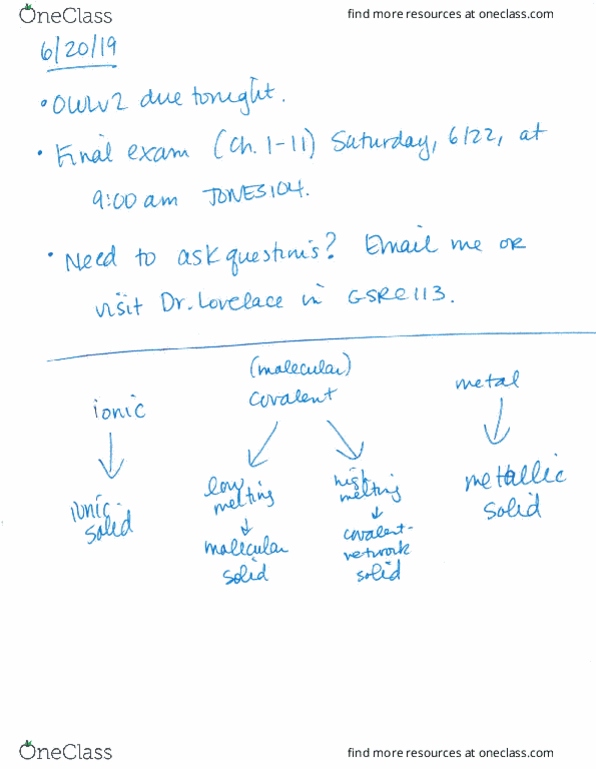 OneClass
find more resources at oneclass.com
6/20/19
• OWLv2 due tonight.
• Final exam (Ch. 1-11) Saturday, 6/22, at
9:00 am JONES104.
• Need to ask questions? Email me or
visit Dr. Lovelace in GSRC113.
(molecular)
ionic covalent metal
low melting high melting
ionic solid metallic solid
molecular solid covalent-network solid
OneClass
find more resources at oneclass.com